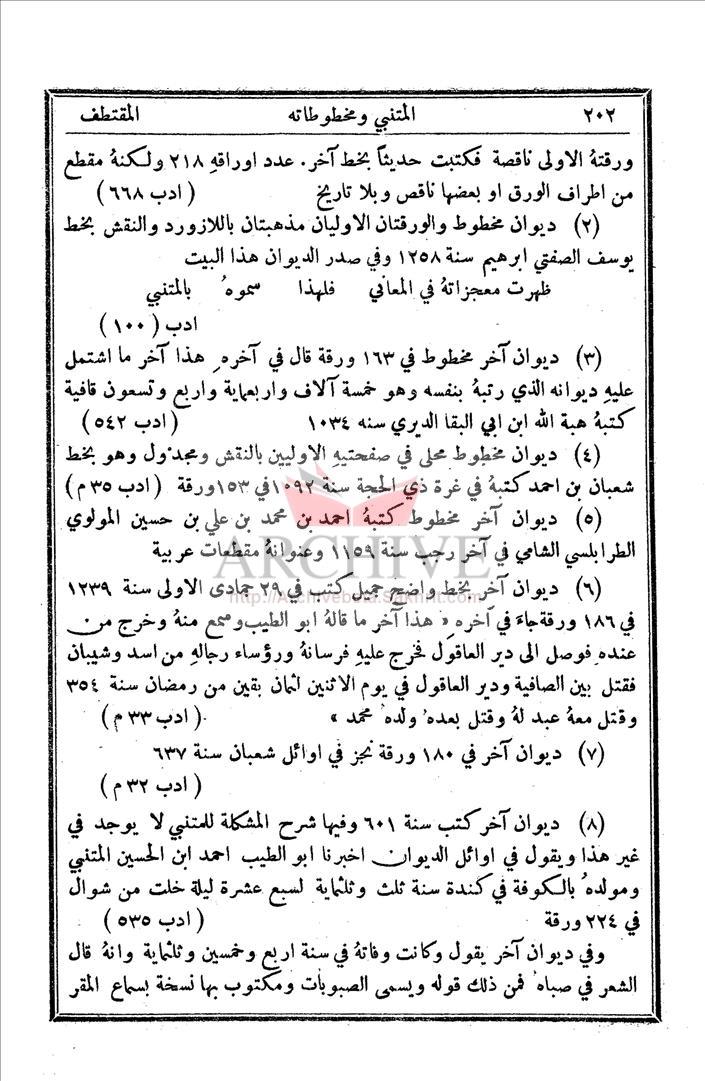 ٢٠٢ المتنبي ومخطوطاته المقتطف
ورقتهُ الاولى ناقصة فكتبت حديثاً بخط آخر. عدد اوراقهِ ٢١٨ ولكنهُ مقطع
من اطراف الورق او بعضها ناقص وبلا تاريخ ( ادب ٦٦٨ )
(٢) ديوان مخطوط والورقتان الاوليان مذهبتان باللازورد والنقش بخط
يوسف الصفتي ابرهيم سنة ١٢٥٨ وفي صدر الديوان هذا البيت
ظهرت معجزاتهُ في المعاني فلهذا سموهُ بالمتنبي
ادب ( ١٠٠ )
(٣) ديوان آخر مخطوط في ١٦٣ ورقة قال في آخرهِ هذا آخر ما اشتمل
عليهِ ديوانه الذي رتبهُ بنفسه وهو خمسة آلاف واربعماية واربع وتسعون قافية
كتبهُ هبة الله ابن ابي البقا الديري سنه ١٠٣٤ ( ادب ٥٤٢ )
(٤) ديوان مخطوط محلى في صفحتيهِ الاوليين بالنقش ومجدول وهو بخط
شعبان بن احمد كتبهُ في غرة ذي الحجة سنة ١٠٩٢ في ١٥٣ ورقة ( ادب ٣٥ م )
(٥) ديوان آخر مخطوط كتبهُ احمد بن محمد بن علي بن حسين المولوي
الطرابلسي الشامي في آخر رجب سنة ١١٥٩ وعنوانهُ مقطعات عربية
ARCHIVE
(٦) ديوان آخر بخط واضح جميل كتب في ٢٩ جمادى الاولى سنة ١٢٣٩
http://Archivebeta.Sakhrit.com
في ١٨٦ ورقة جاء في آخرهِ « هذا آخر ما قالهُ ابو الطيب وسمع منهُ وخرج من
عنده فوصل الى دير العاقول فخرج عليهِ فرسانهُ ورؤساء رجالهِ من اسد وشيبان
فقتل بين الصافية ودير العاقول في يوم الاثنين لثمان بقين من رمضان سنة ٣٥٤
وقتل معهُ عبد لهُ وقتل بعدهُ ولدهُ محمد » ( ادب ٣٣ م )
(٧) ديوان آخر في ١٨٠ ورقة نجز في اوائل شعبان سنة ٦٣٧
( ادب ٣٢ م )
(٨) ديوان آخر كتب سنة ٦٠١ وفيها شرح المشكلة للمتنبي لا يوجد في
غير هذا ويقول في اوائل الديوان اخبرنا ابو الطيب احمد ابن الحسين المتنبي
ومولدهُ بالكوفة في كندة سنة ثلث وثلثماية لسبع عشرة ليلة خلت من شوال
في ٢٢٤ ورقة ( ادب ٥٣٥ )
وفي ديوان آخر يقول وكانت وفاتهُ في سنة اربع وخمسين وثلثماية وانهُ قال
الشعر في صباهُ فمن ذلك قوله ويسمى الصبوبات ومكتوب بها نسخة بسماع المقر